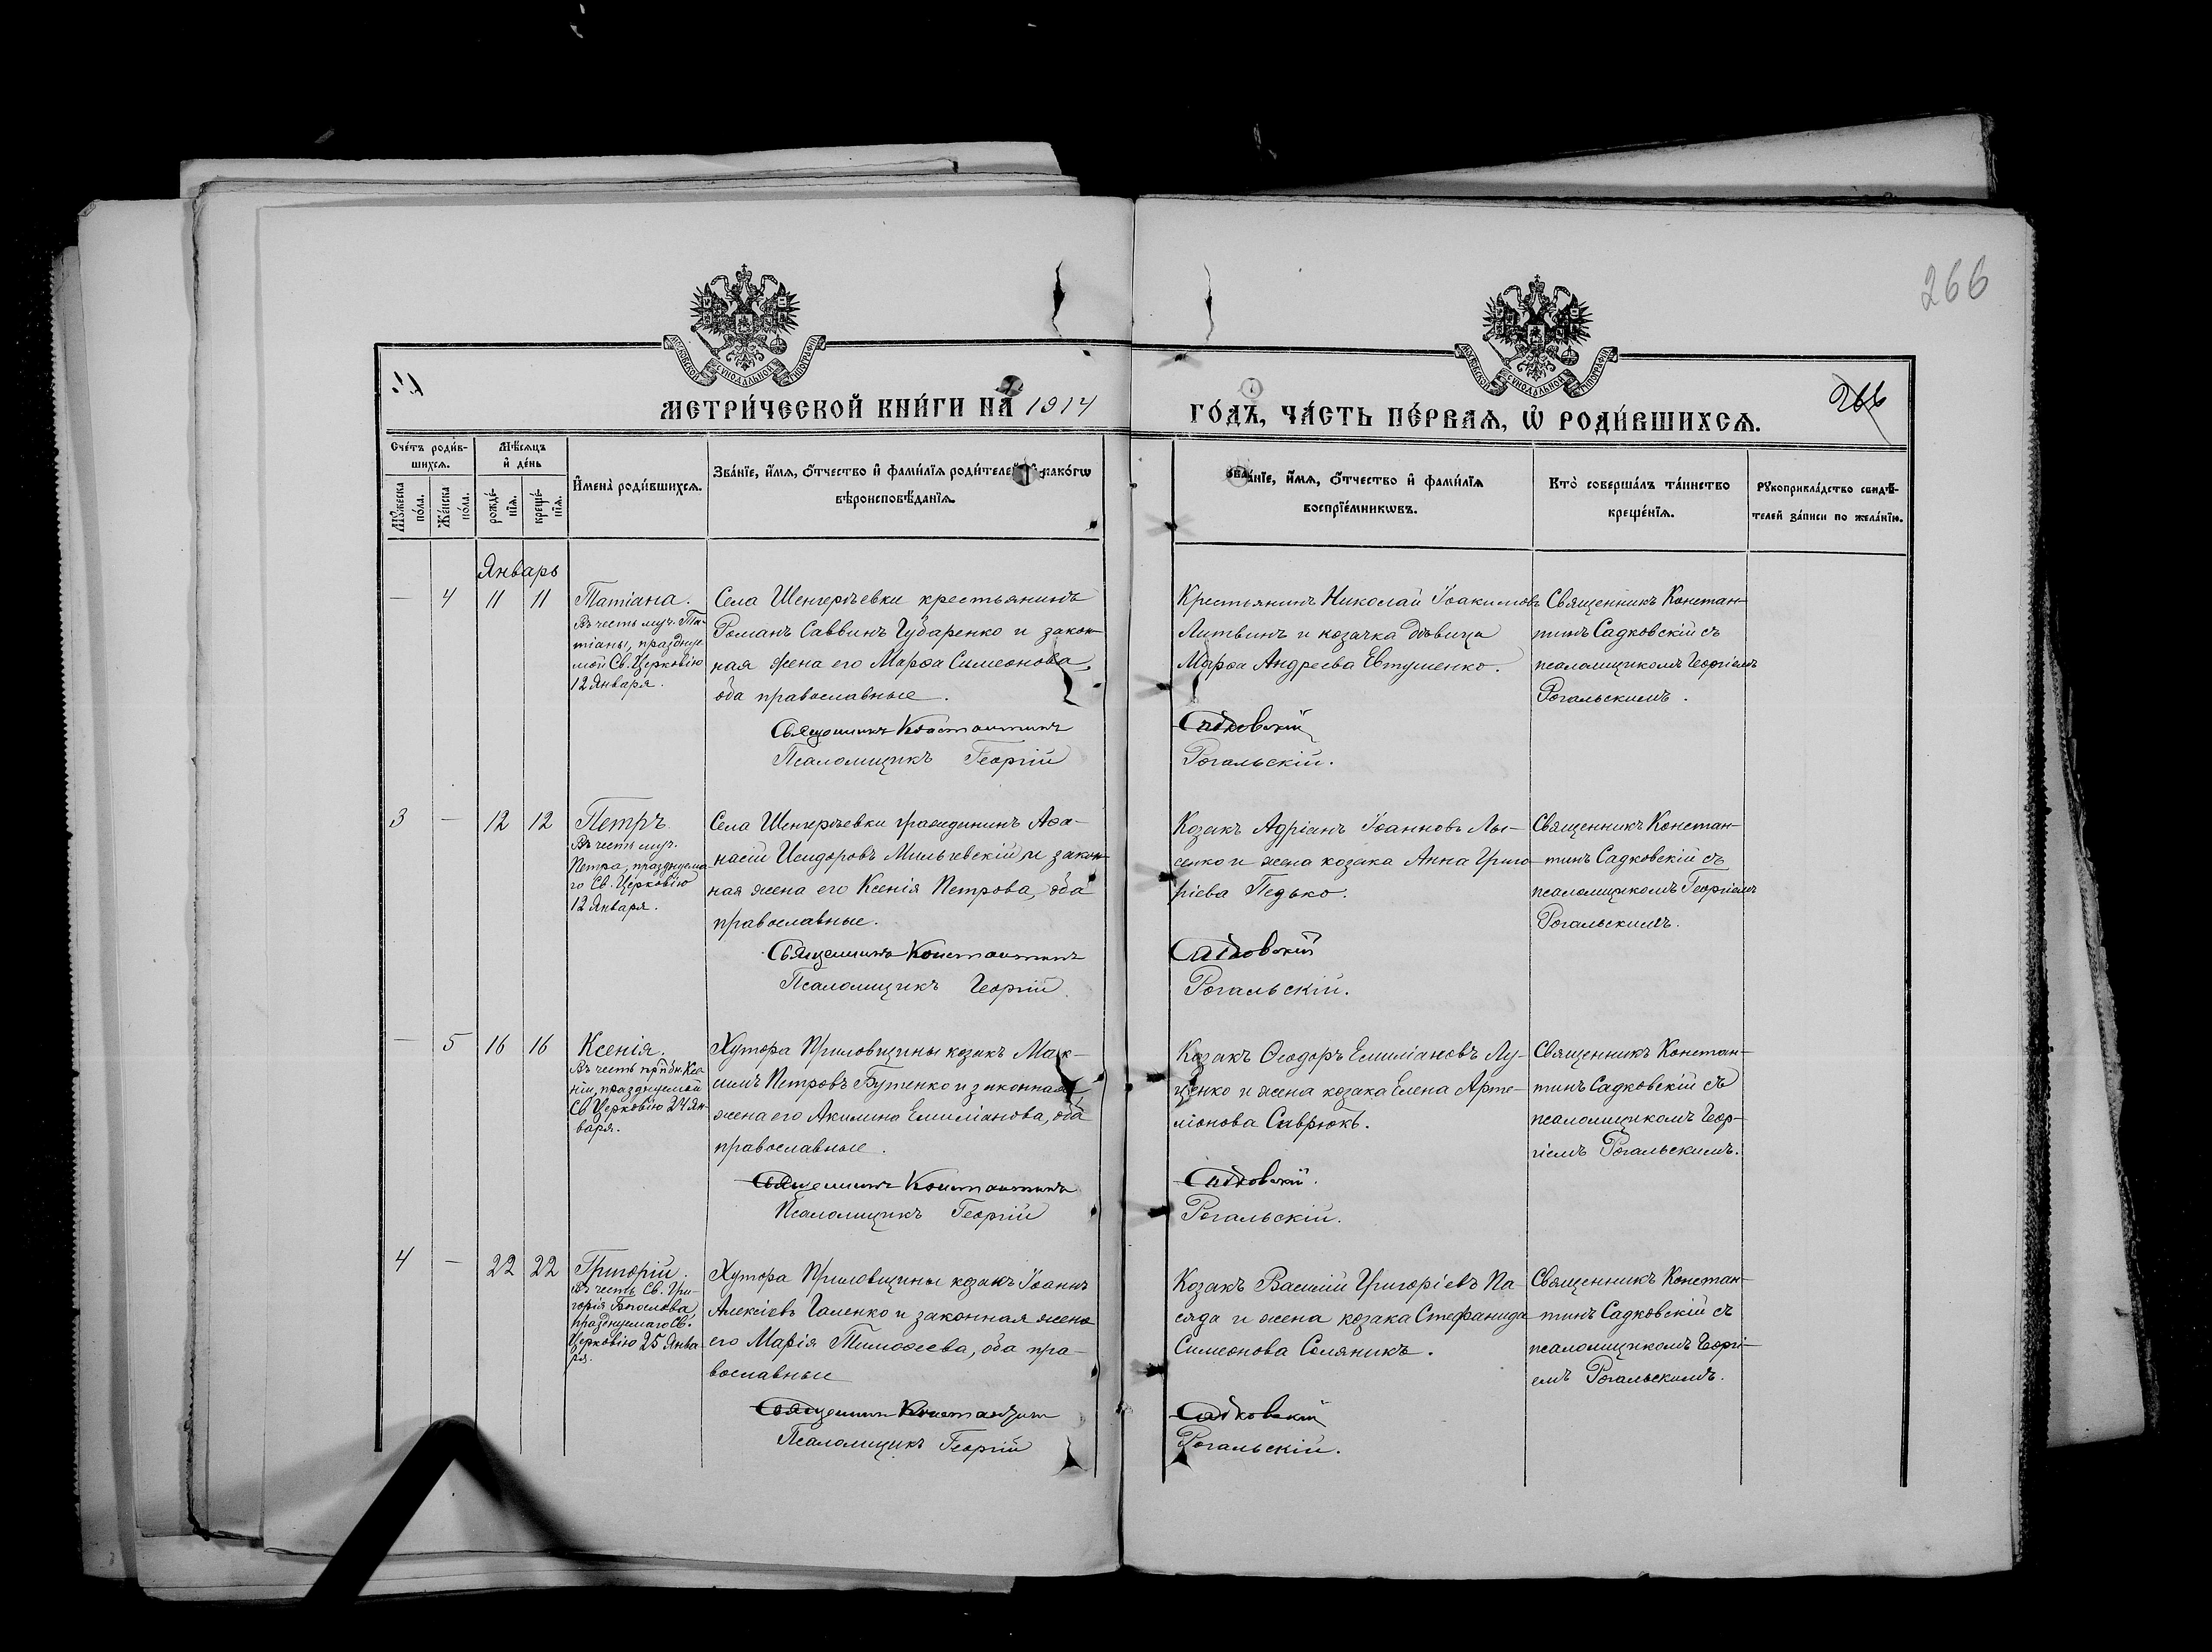 266
МОСКОВСКОЙ СУНОДАЛЬНОЙ ТИПОГРАФІИ
МОСКОВСКОЙ СУНОДАЛЬНОЙ ТИПОГРАФІИ
МЕТРИ́ЧЕСКОЙ КНИ́ГИ НА 1914
ГО́ДЪ, ЧА́СТЬ ПЕ́РВАЯ, Ѡ РОДИ́ВШИХСЯ.
266
Сче́тъ роди́в-
шихся.
Мѣ́сяцъ
и҆ де́нь
Мꙋ́жеска по́ла.
Же́нска по́ла.
рожде́-
нїя.
креще́-
нїя.
И҆мена̀ роди́вшихся.
Зва́нїе, и҆́мя, ѻ҆́тчество и҆ фами́лїя роди́телей, и҆ како́гѡ
вѣроисповѣ́данїя.
Зва́нїе, и҆́мя, ѻ҆́тчество и҆ фами́лїя
воспрїе́мникѡвъ.
Кто̀ соверша́лъ та́инство
креще́нїя.
Рꙋкоприкла́дство свидѣ́-
телей за́писи по жела́нїю.
Январь
— 4 11 11
Татіана.
Въ честь муч. Та-
тіаны, празднуе-
мой Св. Церковію
12 Января.
Села Шенгеръевки крестьянинъ
Романъ Саввинъ Губаренко и закон-
ная жена его Марѳа Симеонова,
оба православные.
Священникъ Константинъ
Псаломщикъ Георгій
Крестьянинъ Николай Іоакимовъ
Литвинъ и козачка дѣвица
Марѳа Андреева Евтушенко.
Садковскій
Рогальскій.
Священникъ Констан-
тинъ Садковскій съ
псаломщикомъ Георгіемъ
Рогальскимъ.
3 — 12 12
Петръ
Въ честь муч.
Петра, празднуема-
го Св. Церковію
12 Января.
Села Шенгеръевки гражданинъ Аѳа-
насій Исидоровъ Мильчевскій и закон-
ная жена его Ксенія Петрова, оба
православные.
Священникъ Константинъ
Псаломщикъ Георгій
Козакъ Адріанъ Іоанновъ Лы-
сенко и жена козака Анна Григо-
ріева Педько.
Садковскій
Рогальскій.
Священникъ Констан-
тинъ Садковскій съ
псаломщикомъ Георгіемъ
Рогальскимъ.
— 5 16 16
Ксенія.
Въ честь прпдн. Ксе-
ніи, празднуемой
Св. Церковію 24 Ян-
варя.
Хутора Приловщины козакъ Мак-
симъ Петровъ Бутенко и законная
жена его Акилина Емиліанова, оба
православные.
Священникъ Константинъ
Псаломщикъ Георгій
Козакъ Ѳеодоръ Емиліановъ Лу-
ценко и жена козака Елена Арте-
міонова Саврюкъ.
Садковскій.
Рогальскій.
Священникъ Констан-
тинъ Садковскій съ
псаломщикомъ Геор-
гіемъ Рогальскимъ.
4 — 22 22
Григорій.
Въ честь Св. Гри-
горія Богослова,
празднуемаго Св.
Церковію 25 Янва-
ря.
Хутора Приловщины козакъ Іоаннъ
Алексіевъ Галенко и законная жена
его Марія Тимоѳеева, оба пра-
вославные
Священникъ Константинъ
Псаломщикъ Георгій
Козакъ Василій Григоріевъ Па-
сяда и жена козака Стефанида
Симеонова Соляникъ.
Садковскій
Рогальскій.
Священникъ Констан-
тинъ Садковскій съ
псаломщикомъ Георгі-
емъ Рогальскимъ.